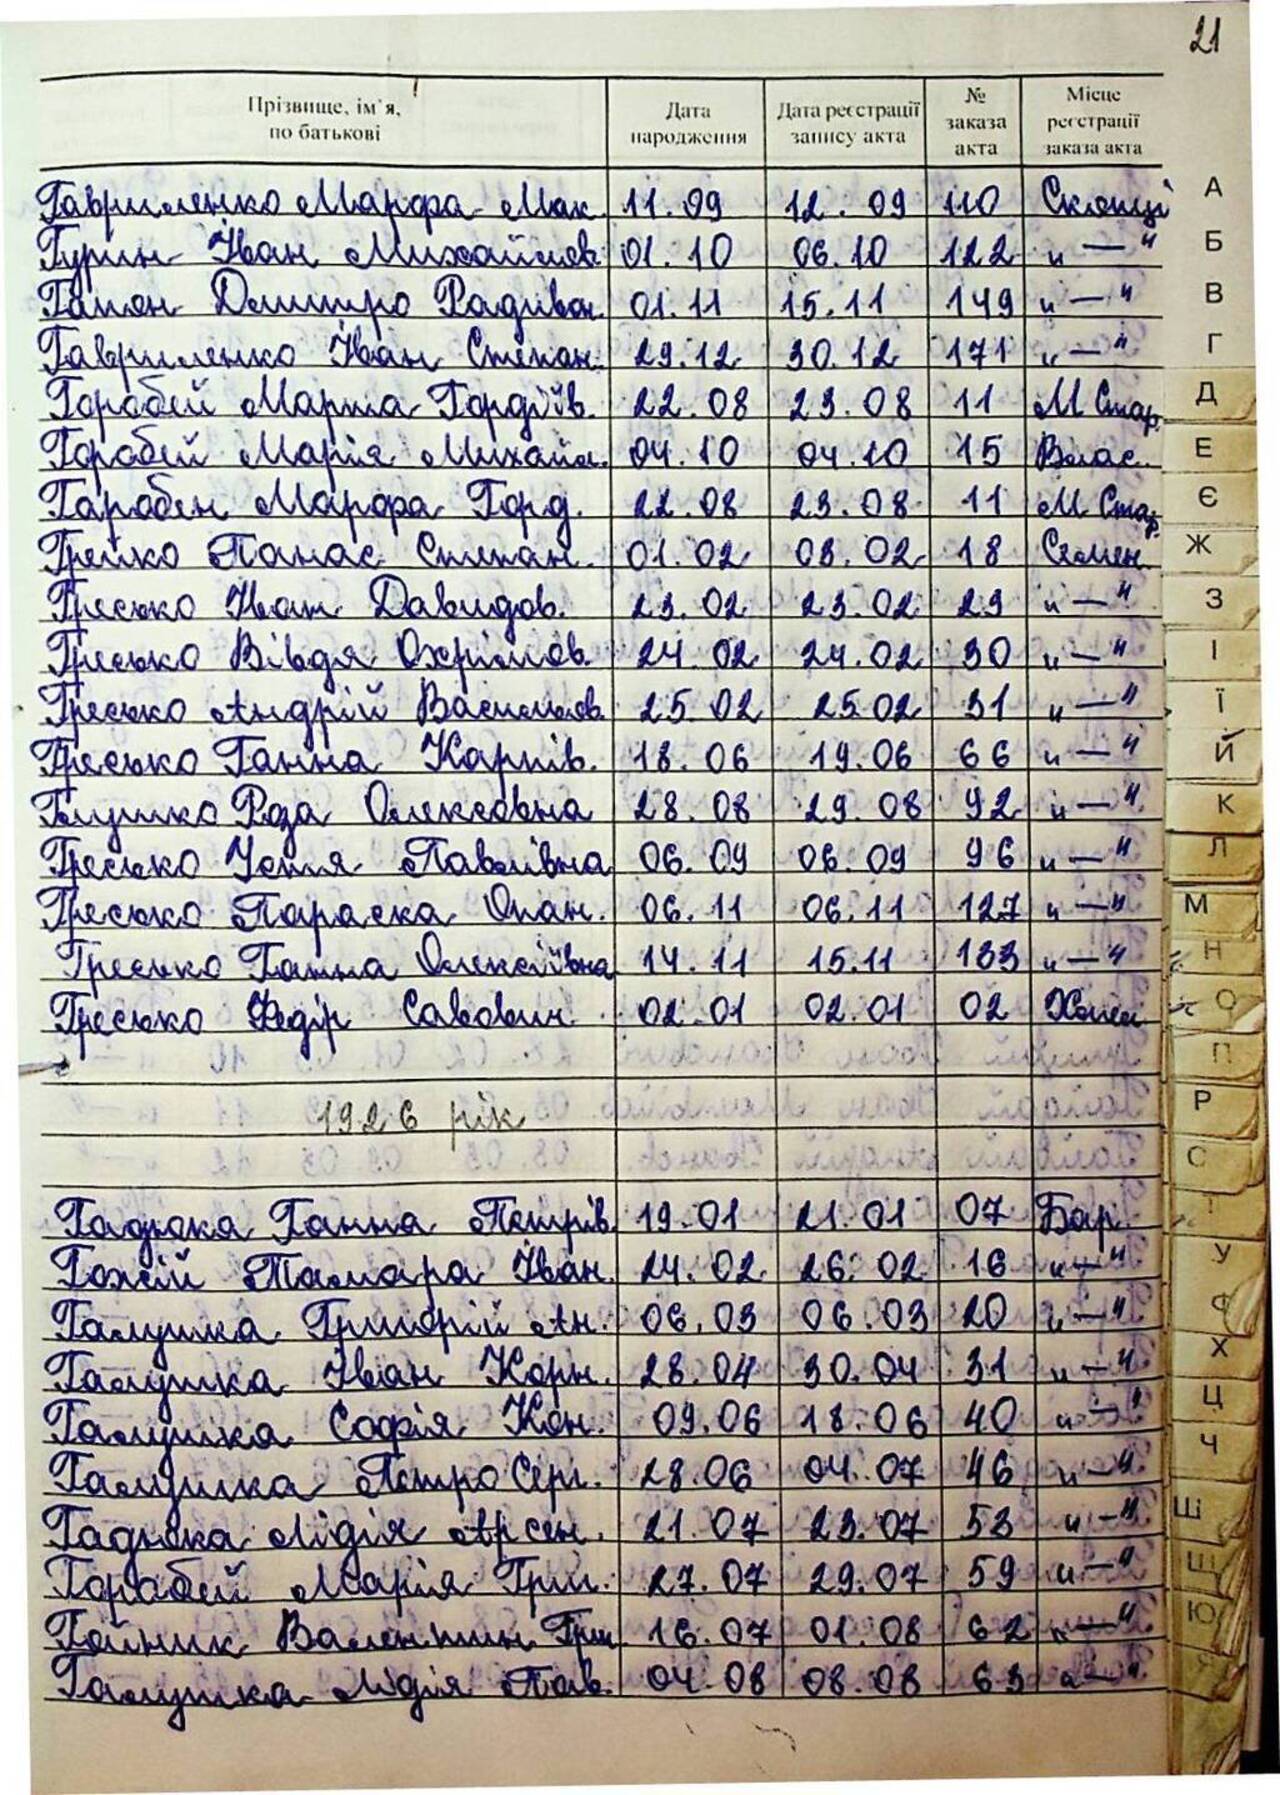 21
Прізвище, ім'я, по батькові | Дата народження | Дата реєстрації запису акта | № заказа акта | Місце реєстрації заказа акта
Гавриленко Марфа Мак. 11.09 12.09 110 Скопці
Гурин Іван Михайлов. 01.10 06.10 122 "—"
Гапон Дмитро Радивон. 01.11 15.11 149 "—"
Гавриленко Іван Степан. 29.12 30.12 171 "—"
Горобей Марта Гордіїв. 22.08 23.08 11 М Стар.
Горобей Марія Михайл. 04.10 04.10 15 Влас.
Гаробен Марфа Горд. 22.08 23.08 11 М Стар.
Грейко Панас Степан. 01.02 03.02 18 Семен.
Гресько Іван Давидов. 23.02 23.02 29 "—"
Гресько Вівдя Охрімов. 24.02 24.02 30 "—"
Гресько Андрій Васильов. 25.02 25.02 31 "—"
Гресько Ганна Карпів. 18.06 19.06 66 "—"
Глушко Роза Олексовна 28.08 29.08 92 "—"
Гресько Устя Павлівна 06.09 06.09 96 "—"
Гресько Параска Опан. 06.11 06.11 127 "—"
Гресько Ганна Олексіївна 14.11 15.11 133 "—"
Гресько Федір Савович 02.01 02.01 02
1926 рік
Гадюка Ганна Петрів. 19.01 21.01 07 Бар.
Гожій Тамара Іван. 24.02 26.02 16 "—"
Галушка Григорій Ан. 06.03 06.03 20 "—"
Галушка Іван Корн. 28.04 30.04 31 "—"
Галушка Софія Кон. 09.06 18.06 40 "—"
Галушка Петро Серг. 28.06 04.07 46 "—"
Гадюка Лідія Арсен. 21.07 23.07 53 "—"
Горобей Марія Гри. 27.07 29.07 59 "—"
Гойник Валентин Гри 16.07 01.08 62 "—"
Галушка Лідія Пав. 04.08 08.08 63 "—"
А
Б
В
Г
Д
Е
Є
Ж
З
І
Ї
Й
К
Л
М
Н
О
П
Р
С
Т
У
Ф
Х
Ц
Ч
Ш
Щ
Ю